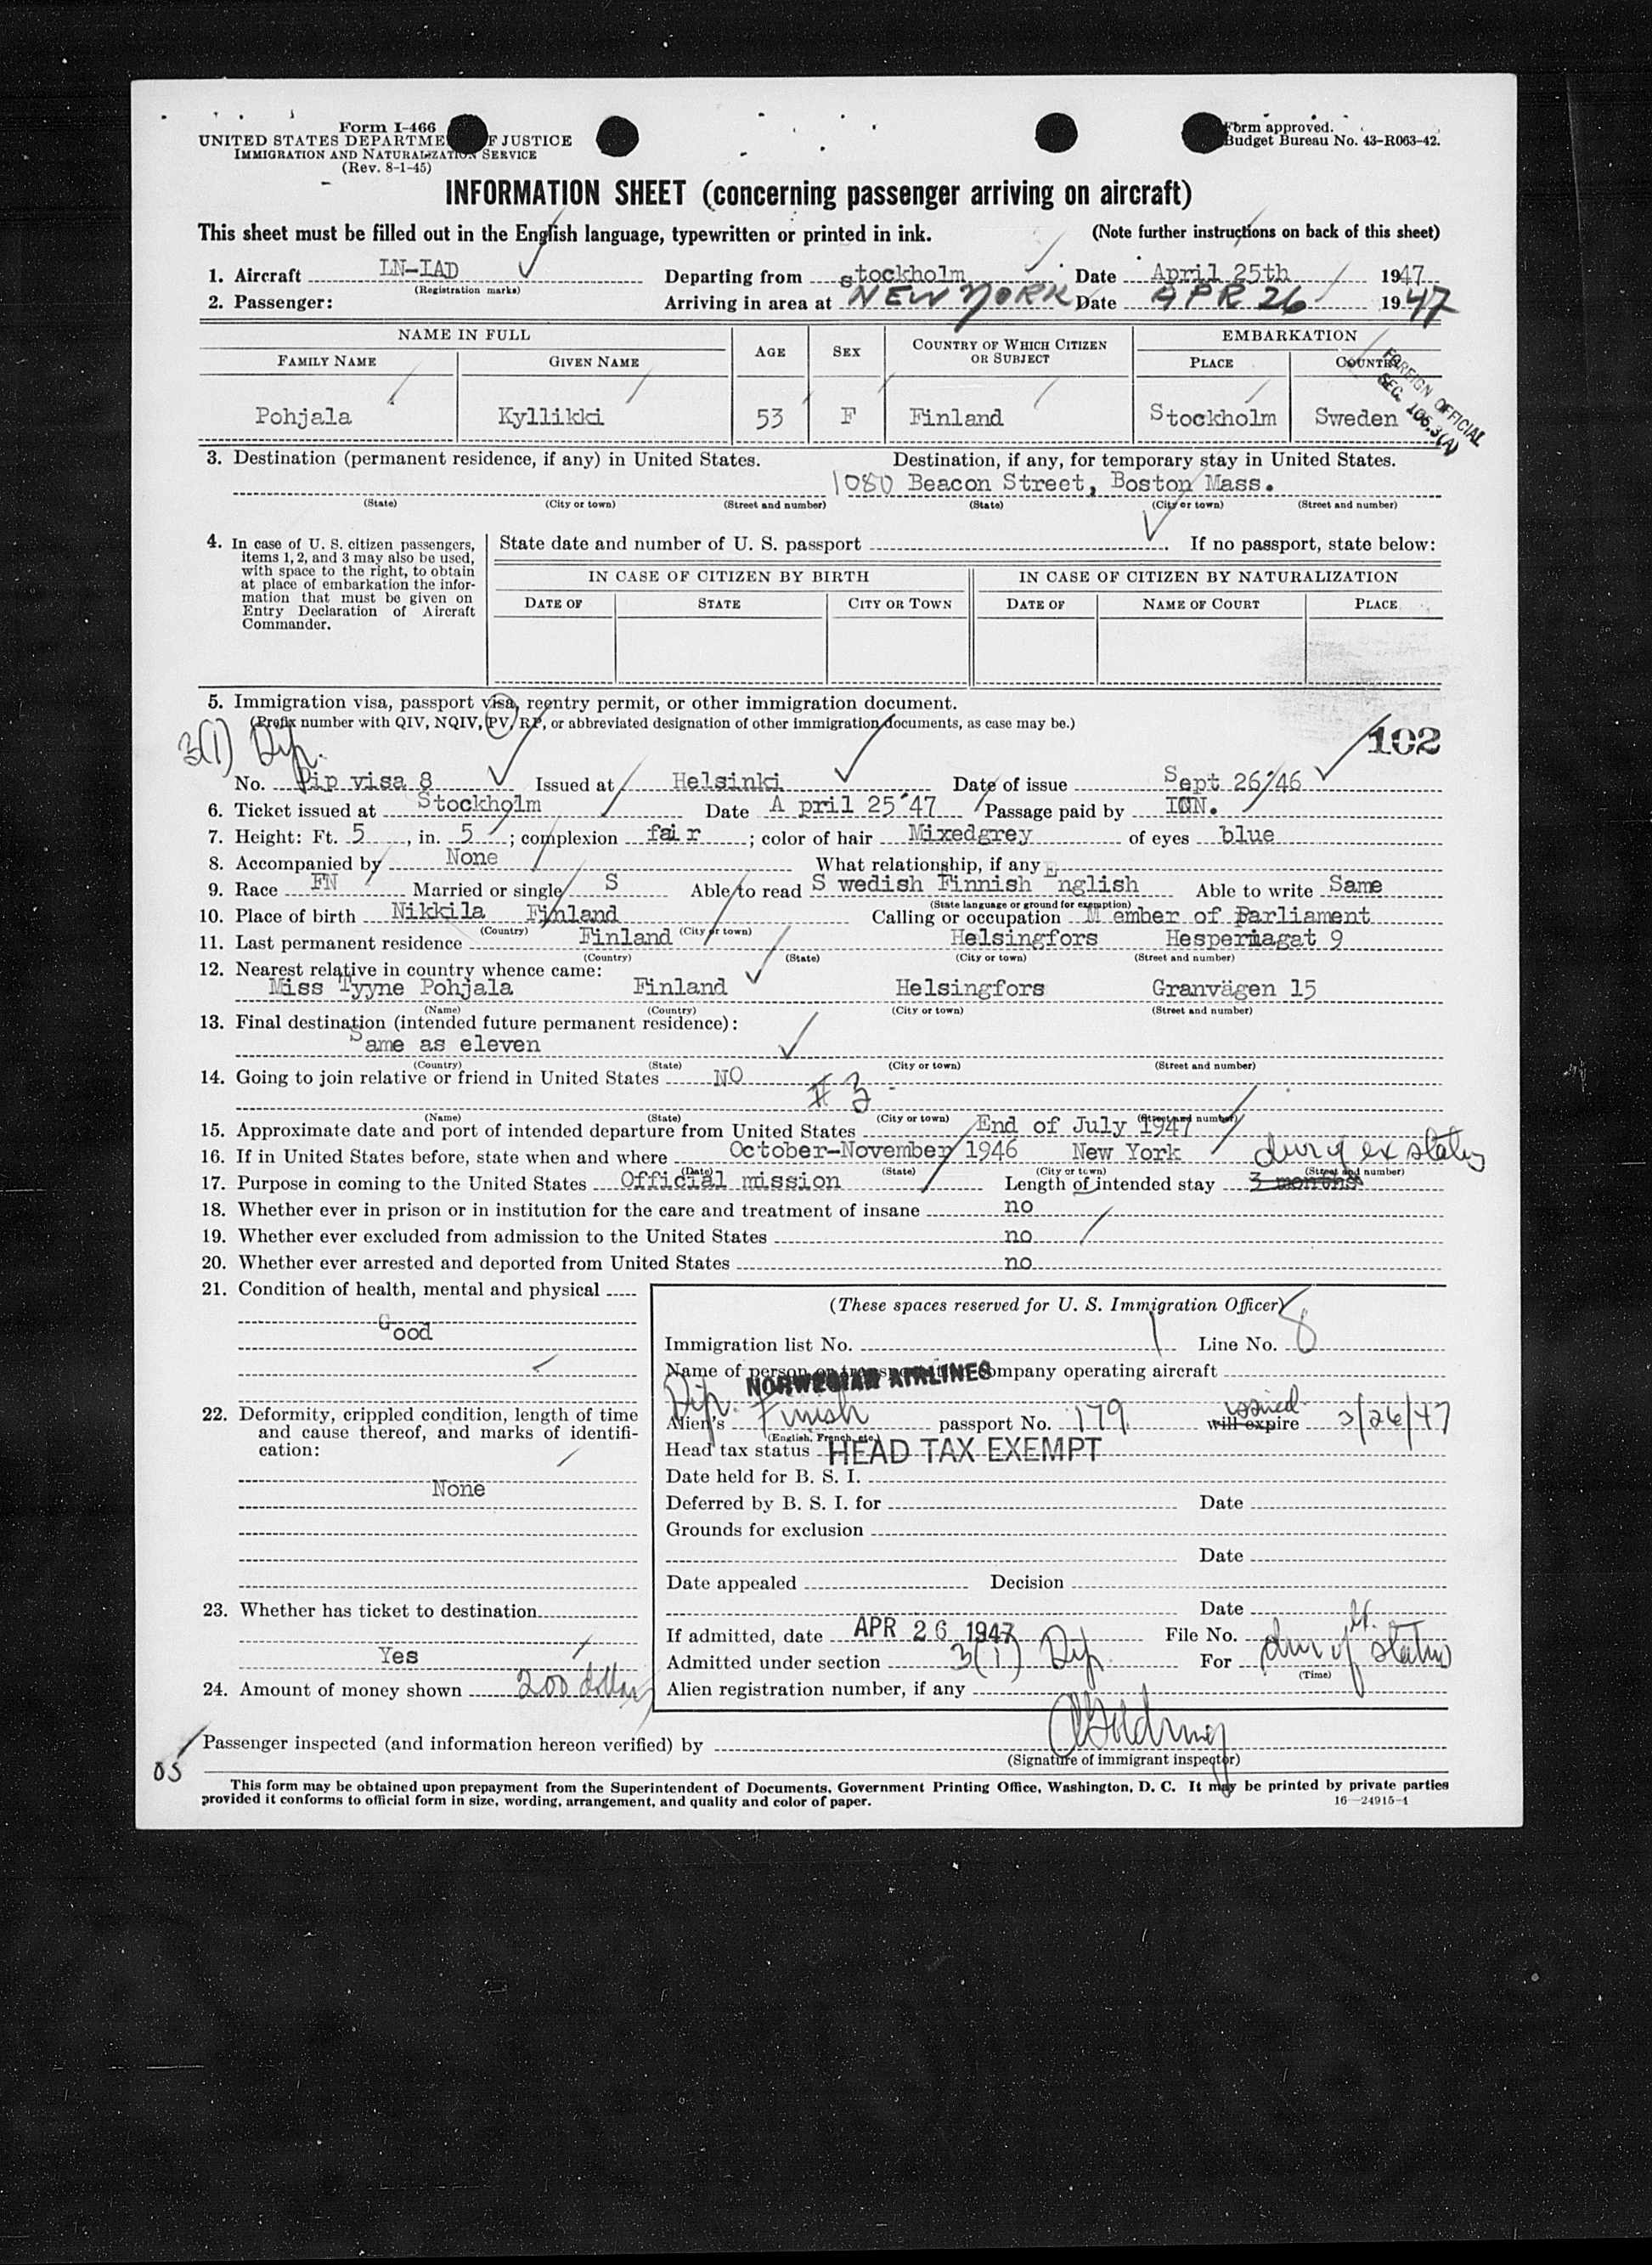 Form I-466
UNITED STATES DEPARTMENT OF JUSTICE
IMMIGRATION AND NATURALIZATION SERVICE
(Rev. 8-1-45)
Form approved.
Budget Bureau No. 43-R063-42.
INFORMATION SHEET (concerning passenger arriving on aircraft)
This sheet must be filled out in the English language, typewritten or printed in ink. (Note further instructions on back of this sheet)
1. Aircraft LN-IAD Departing from Stockholm Date April 25th 1947
(Registration marks)
2. Passenger: Arriving in area at NEW YORK Date APR 26 1947
NAME IN FULL AGE SEX COUNTRY OF WHICH CITIZEN OR SUBJECT EMBARKATION
FAMILY NAME GIVEN NAME PLACE COUNTRY
FOREIGN OFFICIAL
SEC. 105.3(A)
Pohjala Kyllikki 53 F Finland Stockholm Sweden
3. Destination (permanent residence, if any) in United States. Destination, if any, for temporary stay in United States.
1080 Beacon Street, Boston Mass.
(State) (City or town) (Street and number) (State) (City or town) (Street and number)
4. In case of U. S. citizen passengers,
items 1, 2, and 3 may also be used,
with space to the right, to obtain
at place of embarkation the infor-
mation that must be given on
Entry Declaration of Aircraft
Commander.
State date and number of U. S. passport If no passport, state below:
IN CASE OF CITIZEN BY BIRTH IN CASE OF CITIZEN BY NATURALIZATION
DATE OF STATE CITY OR TOWN DATE OF NAME OF COURT PLACE
5. Immigration visa, passport visa, reentry permit, or other immigration document.
(Prefix number with QIV, NQIV, PV, RP, or abbreviated designation of other immigration documents, as case may be.)
3(1) Dip. 102
No. Dip visa 8 Issued at Helsinki Date of issue Sept 26 46
6. Ticket issued at Stockholm Date A pril 25 47 Passage paid by
7. Height: Ft. 5, in. 5; complexion fair; color of hair Mixedgrey of eyes blue
8. Accompanied by None What relationship, if any
9. Race FN Married or single S Able to read S wedish Finnish English Able to write Same
(State language or ground for exemption)
10. Place of birth Nikkila Finland Calling or occupation M ember of Parliament
(Country) (City or town)
11. Last permanent residence Finland Helsingfors Hesperiagat 9
(Country) (State) (City or town) (Street and number)
12. Nearest relative in country whence came:
Miss Tyyne Pohjala Finland Helsingfors Granvägen 15
(Name) (Country) (City or town) (Street and number)
13. Final destination (intended future permanent residence):
Same as eleven
(Country) (State) (City or town) (Street and number)
14. Going to join relative or friend in United States NO
# 3
(Name) (State) (City or town) (Street and number)
15. Approximate date and port of intended departure from United States End of July 1947
16. If in United States before, state when and where October-November 1946 New York
(Date) (State) (City or town) (Street and number)
dur of ex status
17. Purpose in coming to the United States Official mission Length of intended stay 3 months
18. Whether ever in prison or in institution for the care and treatment of insane no
19. Whether ever excluded from admission to the United States no
20. Whether ever arrested and deported from United States no
21. Condition of health, mental and physical
Good
22. Deformity, crippled condition, length of time
and cause thereof, and marks of identifi-
cation:
None
23. Whether has ticket to destination
Yes
24. Amount of money shown 200 dollars
(These spaces reserved for U. S. Immigration Officer)
Immigration list No. 1 Line No. 8
Name of person or transportation company operating aircraft
NORWEGIAN AIRLINES
Dip.
Alien's Finish passport No. 179 will expire issued 3/26/47
(English, French, etc.)
Head tax status HEAD TAX EXEMPT
Date held for B. S. I.
Deferred by B. S. I. for Date
Grounds for exclusion
Date
Date appealed Decision
Date
If admitted, date APR 26 1947 File No.
Admitted under section 3(1) Dip For dur of ex. status
(Time)
Alien registration number, if any
Passenger inspected (and information hereon verified) by
(Signature of immigrant inspector)
05
This form may be obtained upon prepayment from the Superintendent of Documents, Government Printing Office, Washington, D. C. It may be printed by private parties
provided it conforms to official form in size, wording, arrangement, and quality and color of paper. 16—24915-1